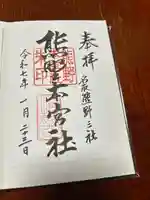 奉拝
熊野三社
熊野本宮社
令和七年 一月 二十三日